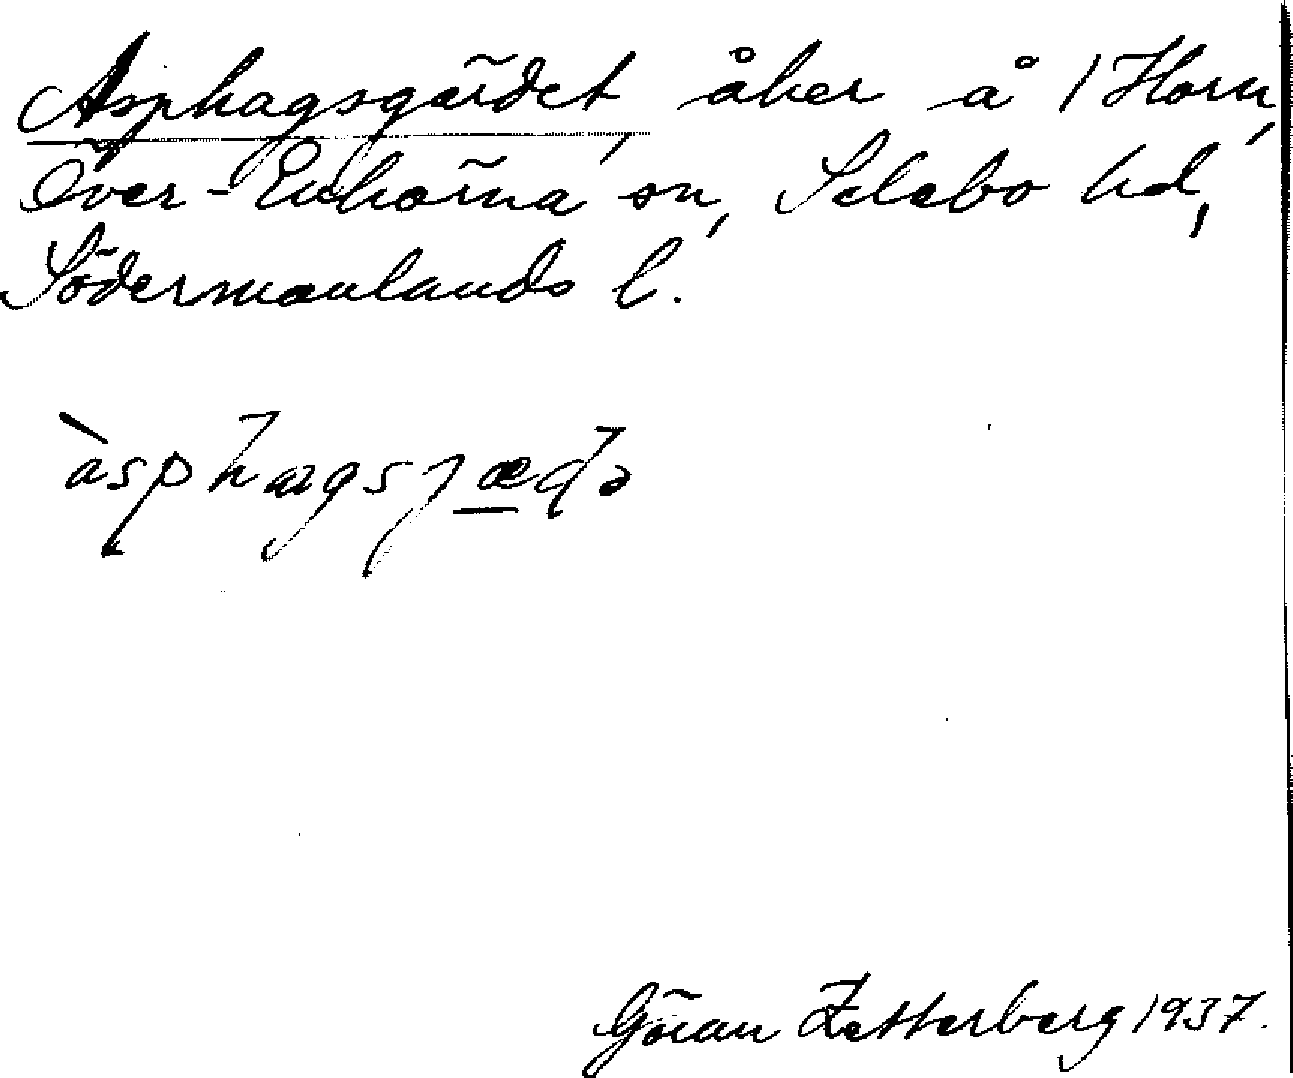 Asphagsgärdet, åker å 1 Horn,
Över-Enhörna sn, Selebo hd,
Södermanlands l.
Göran Zetterberg 1937.